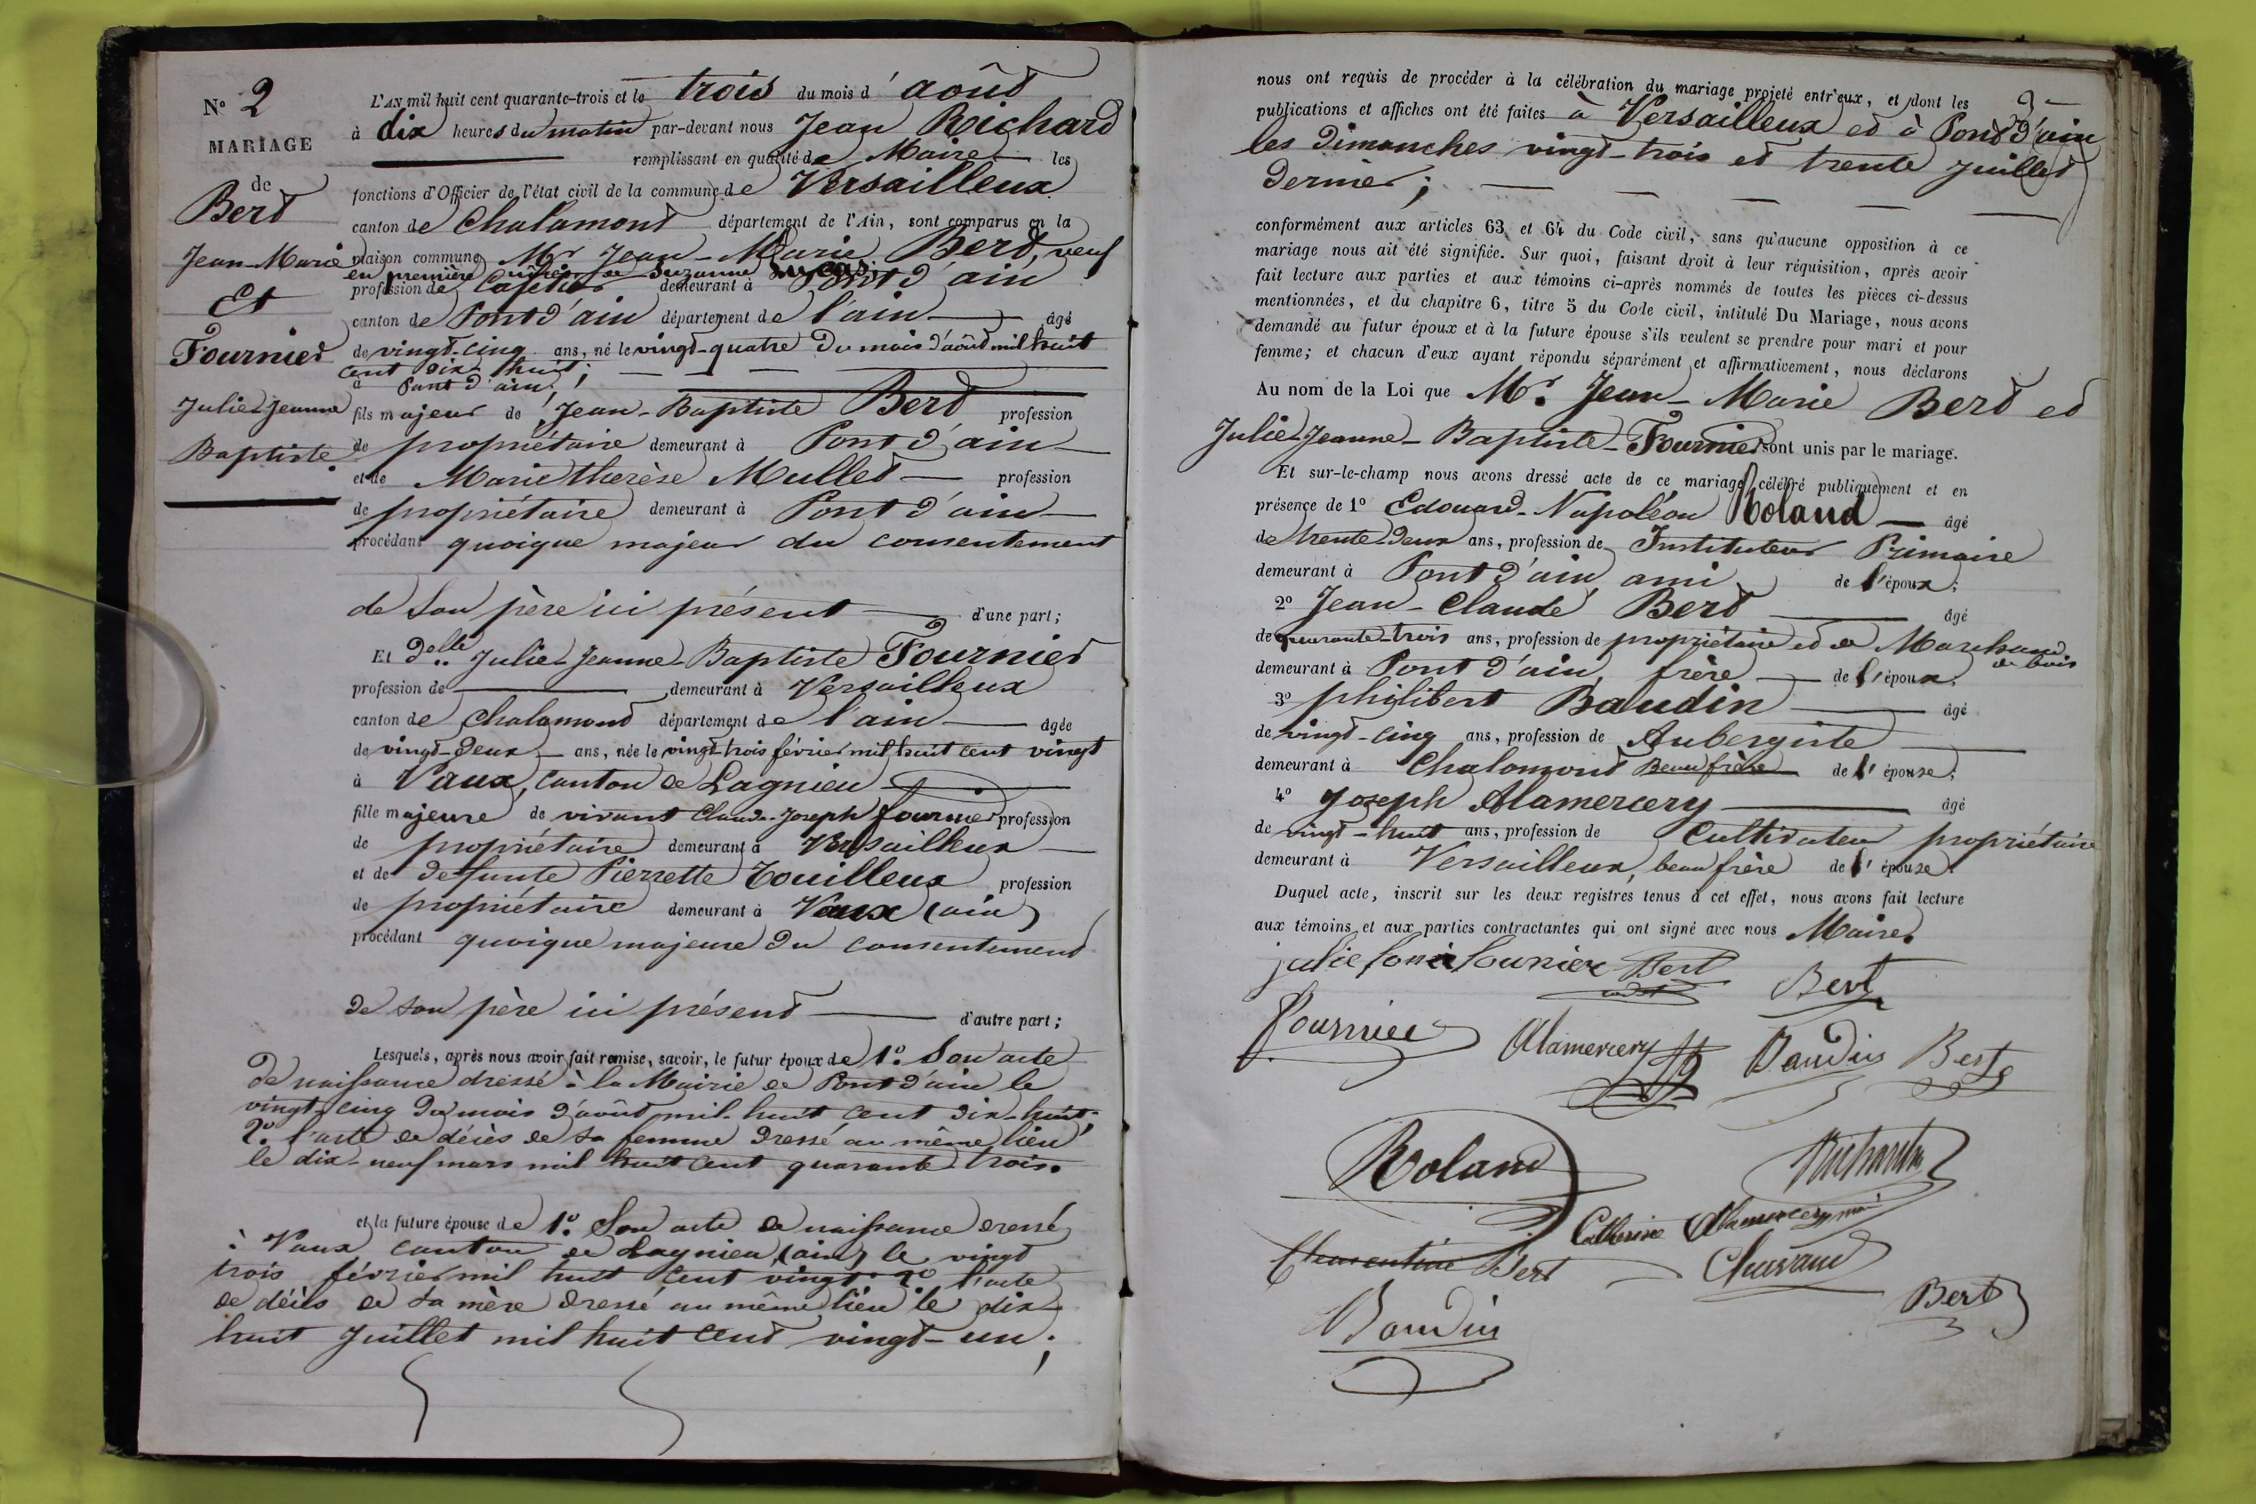 N° 2
MARIAGE
de
Bert
Jean-Marie
Et
Fournier
Julie-Jeanne
Baptiste
L'AN mil huit cent quarante-trois et le trois du mois d'août
à dix heures du matin par-devant nous Jean Richard
remplissant en qualité de Maire les
fonctions d'Officier de l'état civil de la commune de Versailleux
canton de Chalamont département de l'Ain, sont comparus en la
maison commune Mr Jean-Marie Bert, veuf
en première nôces de Suzanne
profession de Cafetier demeurant à Pont d'ain
canton de Pont d'ain département de l'ain âgé
de vingt-cinq ans, né le vingt-quatre du mois d'août mil huit
cent dix-huit;
à Pont d'ain;
fils majeur de Jean-Baptiste Bert profession
de propriétaire demeurant à Pont d'ain
et de Marie therèse Mullet profession
de propriétaire demeurant à Pont d'ain
procédant quoique majeur du consentement
de son père ici présent d'une part;
Et delle Julie-Jeanne-Baptiste Fournier
profession de demeurant à Versailleux
canton de Chalamont département de l'ain âgée
de vingt-deux ans, née le vingt-trois février mil huit cent vingt
à Vaux, canton de Lagnieu
fille majeure de vivant Claude-Joseph fournier profession
de propriétaire demeurant à Versailleux
et de defunte Pierrette Touilleux profession
de propriétaire demeurant à Vaux (ain)
procédant quoique majeure du consentement
de son père ici présent d'autre part;
Lesquels, après nous avoir fait remise, savoir, le futur époux de 1°. Son acte
de naissance dressé à la Mairie de Pont d'ain le
vingt-cinq du mois d'août mil-huit cent dix-huit;
2°. l'acte de décès de sa femme dressé au même lieu
le dix-neuf mars mil huit cent quarante trois.
et la future épouse de 1°. Son acte de naissance dressé
à Vaux canton de Lagnieu (ain) le vingt
trois février mil huit cent vingt. 2° l'acte
de décès de sa mère dressé au même lieu le dix
huit juillet mil huit cent vingt-un;
nous ont requis de procéder à la célébration du mariage projeté entr'eux, et dont les
publications et affiches ont été faites à Versailleux et à Pont d'ain
les dimanches vingt-trois et trente juillet
dernier;
conformément aux articles 63 et 64 du Code civil, sans qu'aucune opposition à ce
mariage nous ait été signifiée. Sur quoi, faisant droit à leur réquisition, après avoir
fait lecture aux parties et aux témoins ci-après nommés de toutes les pièces ci-dessus
mentionnées, et du chapitre 6, titre 5 du Code civil, intitulé Du Mariage, nous avons
demandé au futur époux et à la future épouse s'ils veulent se prendre pour mari et pour
femme; et chacun d'eux ayant répondu séparément et affirmativement, nous déclarons
Au nom de la Loi que Mr. Jean-Marie Bert et
Julie-Jeanne-Baptiste-Fournier sont unis par le mariage.
Et sur-le-champ nous avons dressé acte de ce mariage célébré publiquement et en
présence de 1° Edouard-Napoléon Roland âgé
de trente-deux ans, profession de Instituteur Primaire
demeurant à Pont d'ain, ami de l'époux;
2° Jean-Claude Bert âgé
de quarante-trois ans, profession de propriétaire et de Marchand
de bois
demeurant à Pont d'ain, frère de l'époux;
3° philibert Baudin âgé
de vingt-cinq ans, profession de Aubergiste
demeurant à Chalamont Beau frère de l'épouse;
4° Joseph Alamercery âgé
de vingt-huit ans, profession de Cultivateur propriétaire
demeurant à Versailleux, beau frère de l'épouse.
Duquel acte, inscrit sur les deux registres tenus à cet effet, nous avons fait lecture
aux témoins et aux parties contractantes qui ont signé avec nous Maire.
julie fournier Bert
Bert
Fournier Alamercery Baudin Bert
Roland
Catherine Alamercery
Clarentine Bert
Baudin Bert